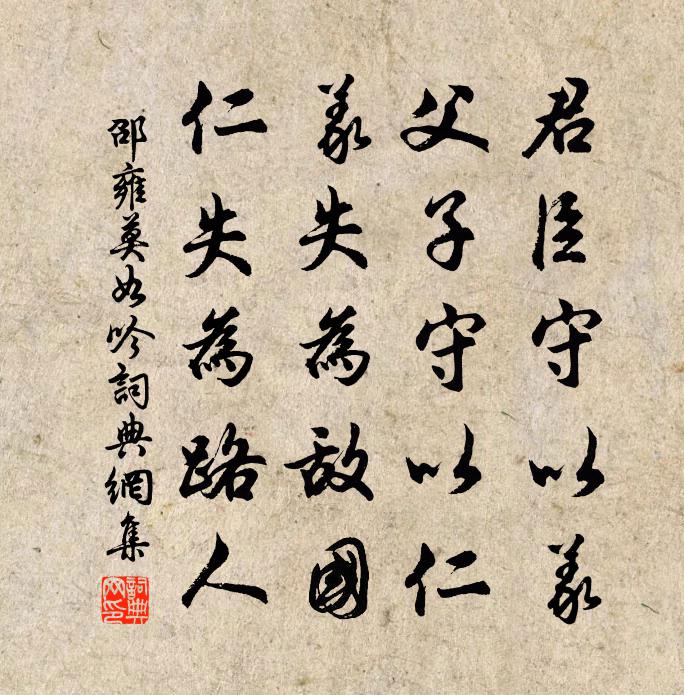 君臣守以義
父子守以仁
義失為敵國
仁失為路人
邵雍莫如吟詞典網集
詞典網印